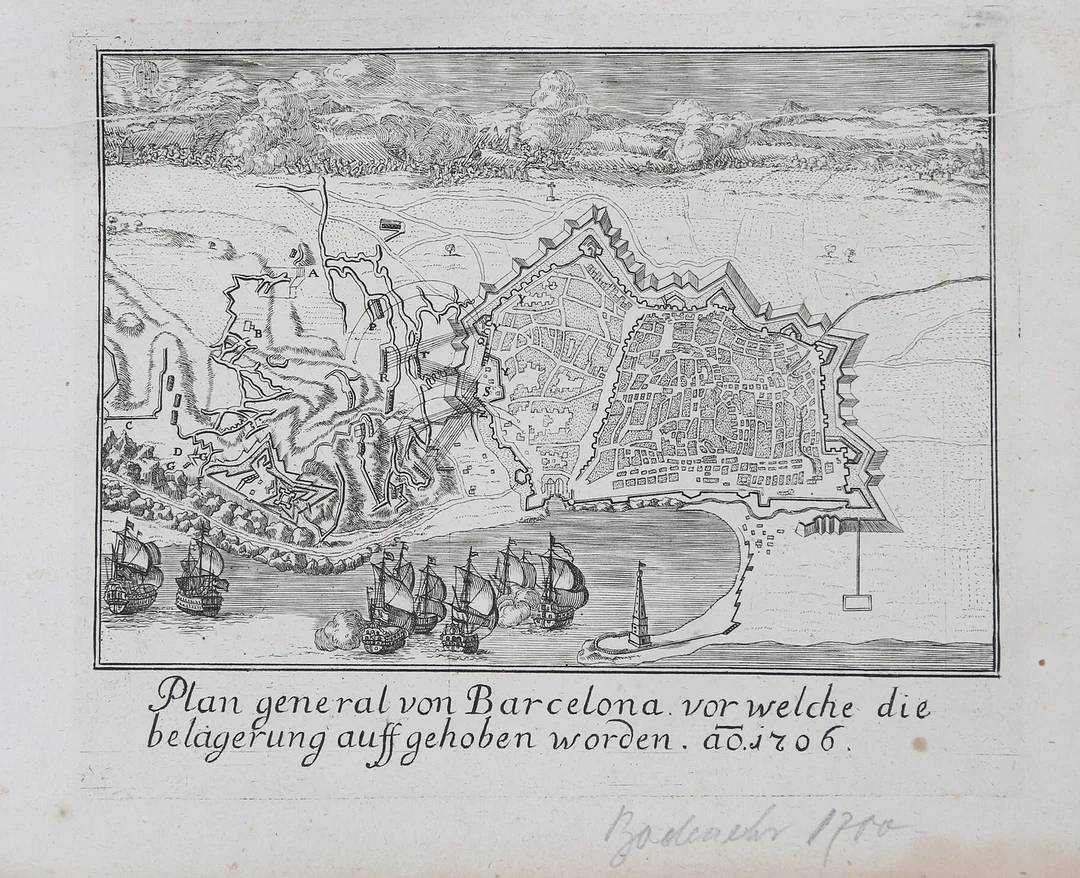 A
B
P
T
R
S
X
C
D
G
Plan general von Barcelona. vor welche die
belägerung auff gehoben worden. aō. 1706.
Bodenehr 1700